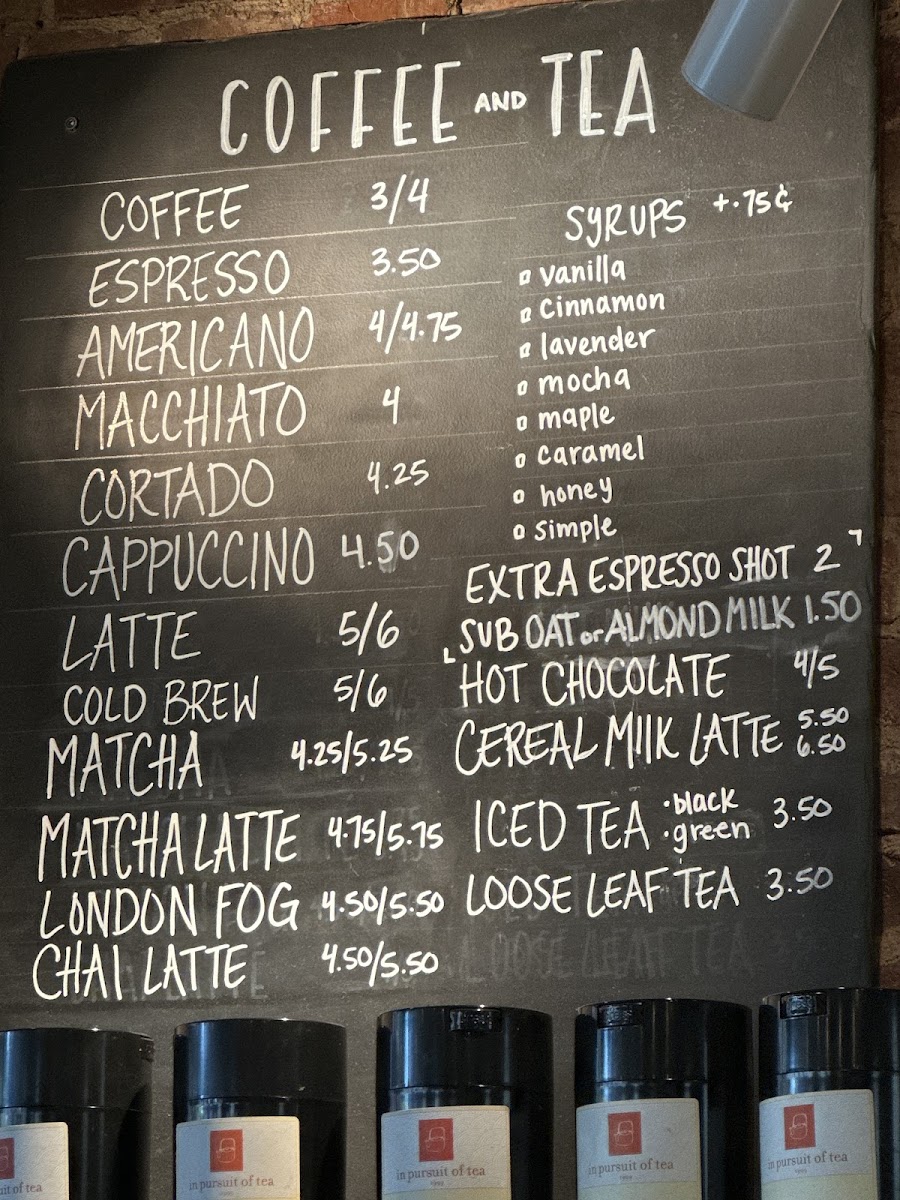 COFFEE AND TEA
COFFEE 3/4
ESPRESSO 3.50
AMERICANO 4/4.75
MACCHIATO 4
CORTADO 4.25
CAPPUCCINO 4.50
LATTE 5/6
COLD BREW 5/6
MATCHA 4.25/5.25
MATCHA LATTE 4.75/5.75
LONDON FOG 4.50/5.50
CHAI LATTE 4.50/5.50
SYRUPS +.75¢
vanilla
cinnamon
lavender
mocha
maple
caramel
honey
simple
EXTRA ESPRESSO SHOT 2
SUB OAT or ALMOND MILK 1.50
HOT CHOCOLATE 4/5
CEREAL MILK LATTE 5.50
6.50
ICED TEA • black 3.50
• green
LOOSE LEAF TEA 3.50
LOOSE LEAF TEA
it of tea
in pursuit of tea
in pursuit of tea
in pursuit of tea
in pursuit of tea